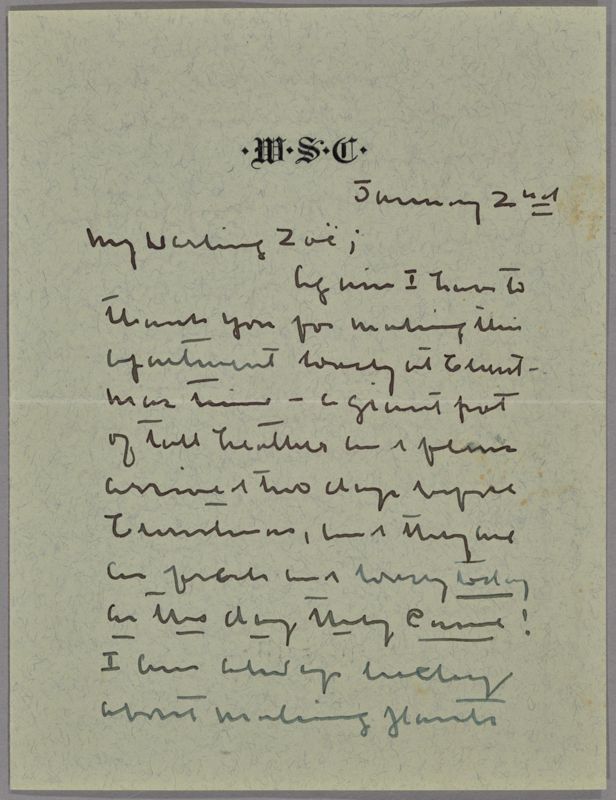 ·W·S·C·
January 2nd
My Darling Zoë;
Again I have to
thank you for making this
apartment lovely at Christ-
mas time – a giant pot
of tall heather and
arrived two days before
Christmas, and they are
as fresh and lovely today
as the day they came!
I am always lucky
about making plants